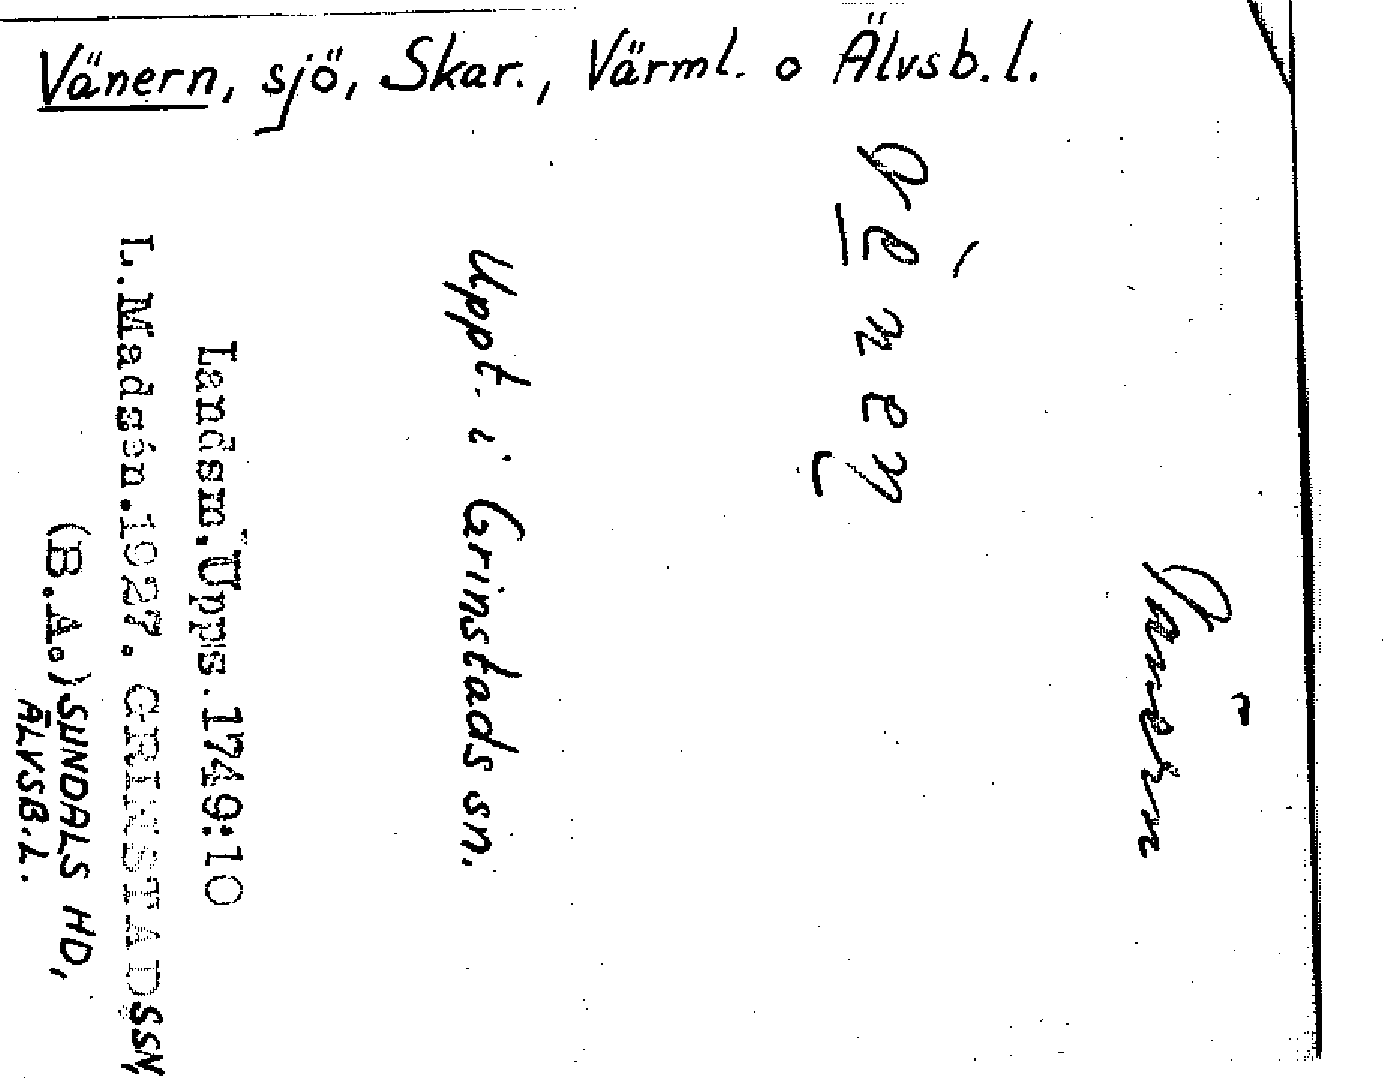 Vänern, sjö, Skar., Värml. o Älvsb.l.
Vänern
Uppt. i Grinstads sn.
Landsm.Upps.1749:10
L.Madsén.1927. GRINSTADSSN,
(B.A.) SUNDALS HD,
ÄLVSB.L.